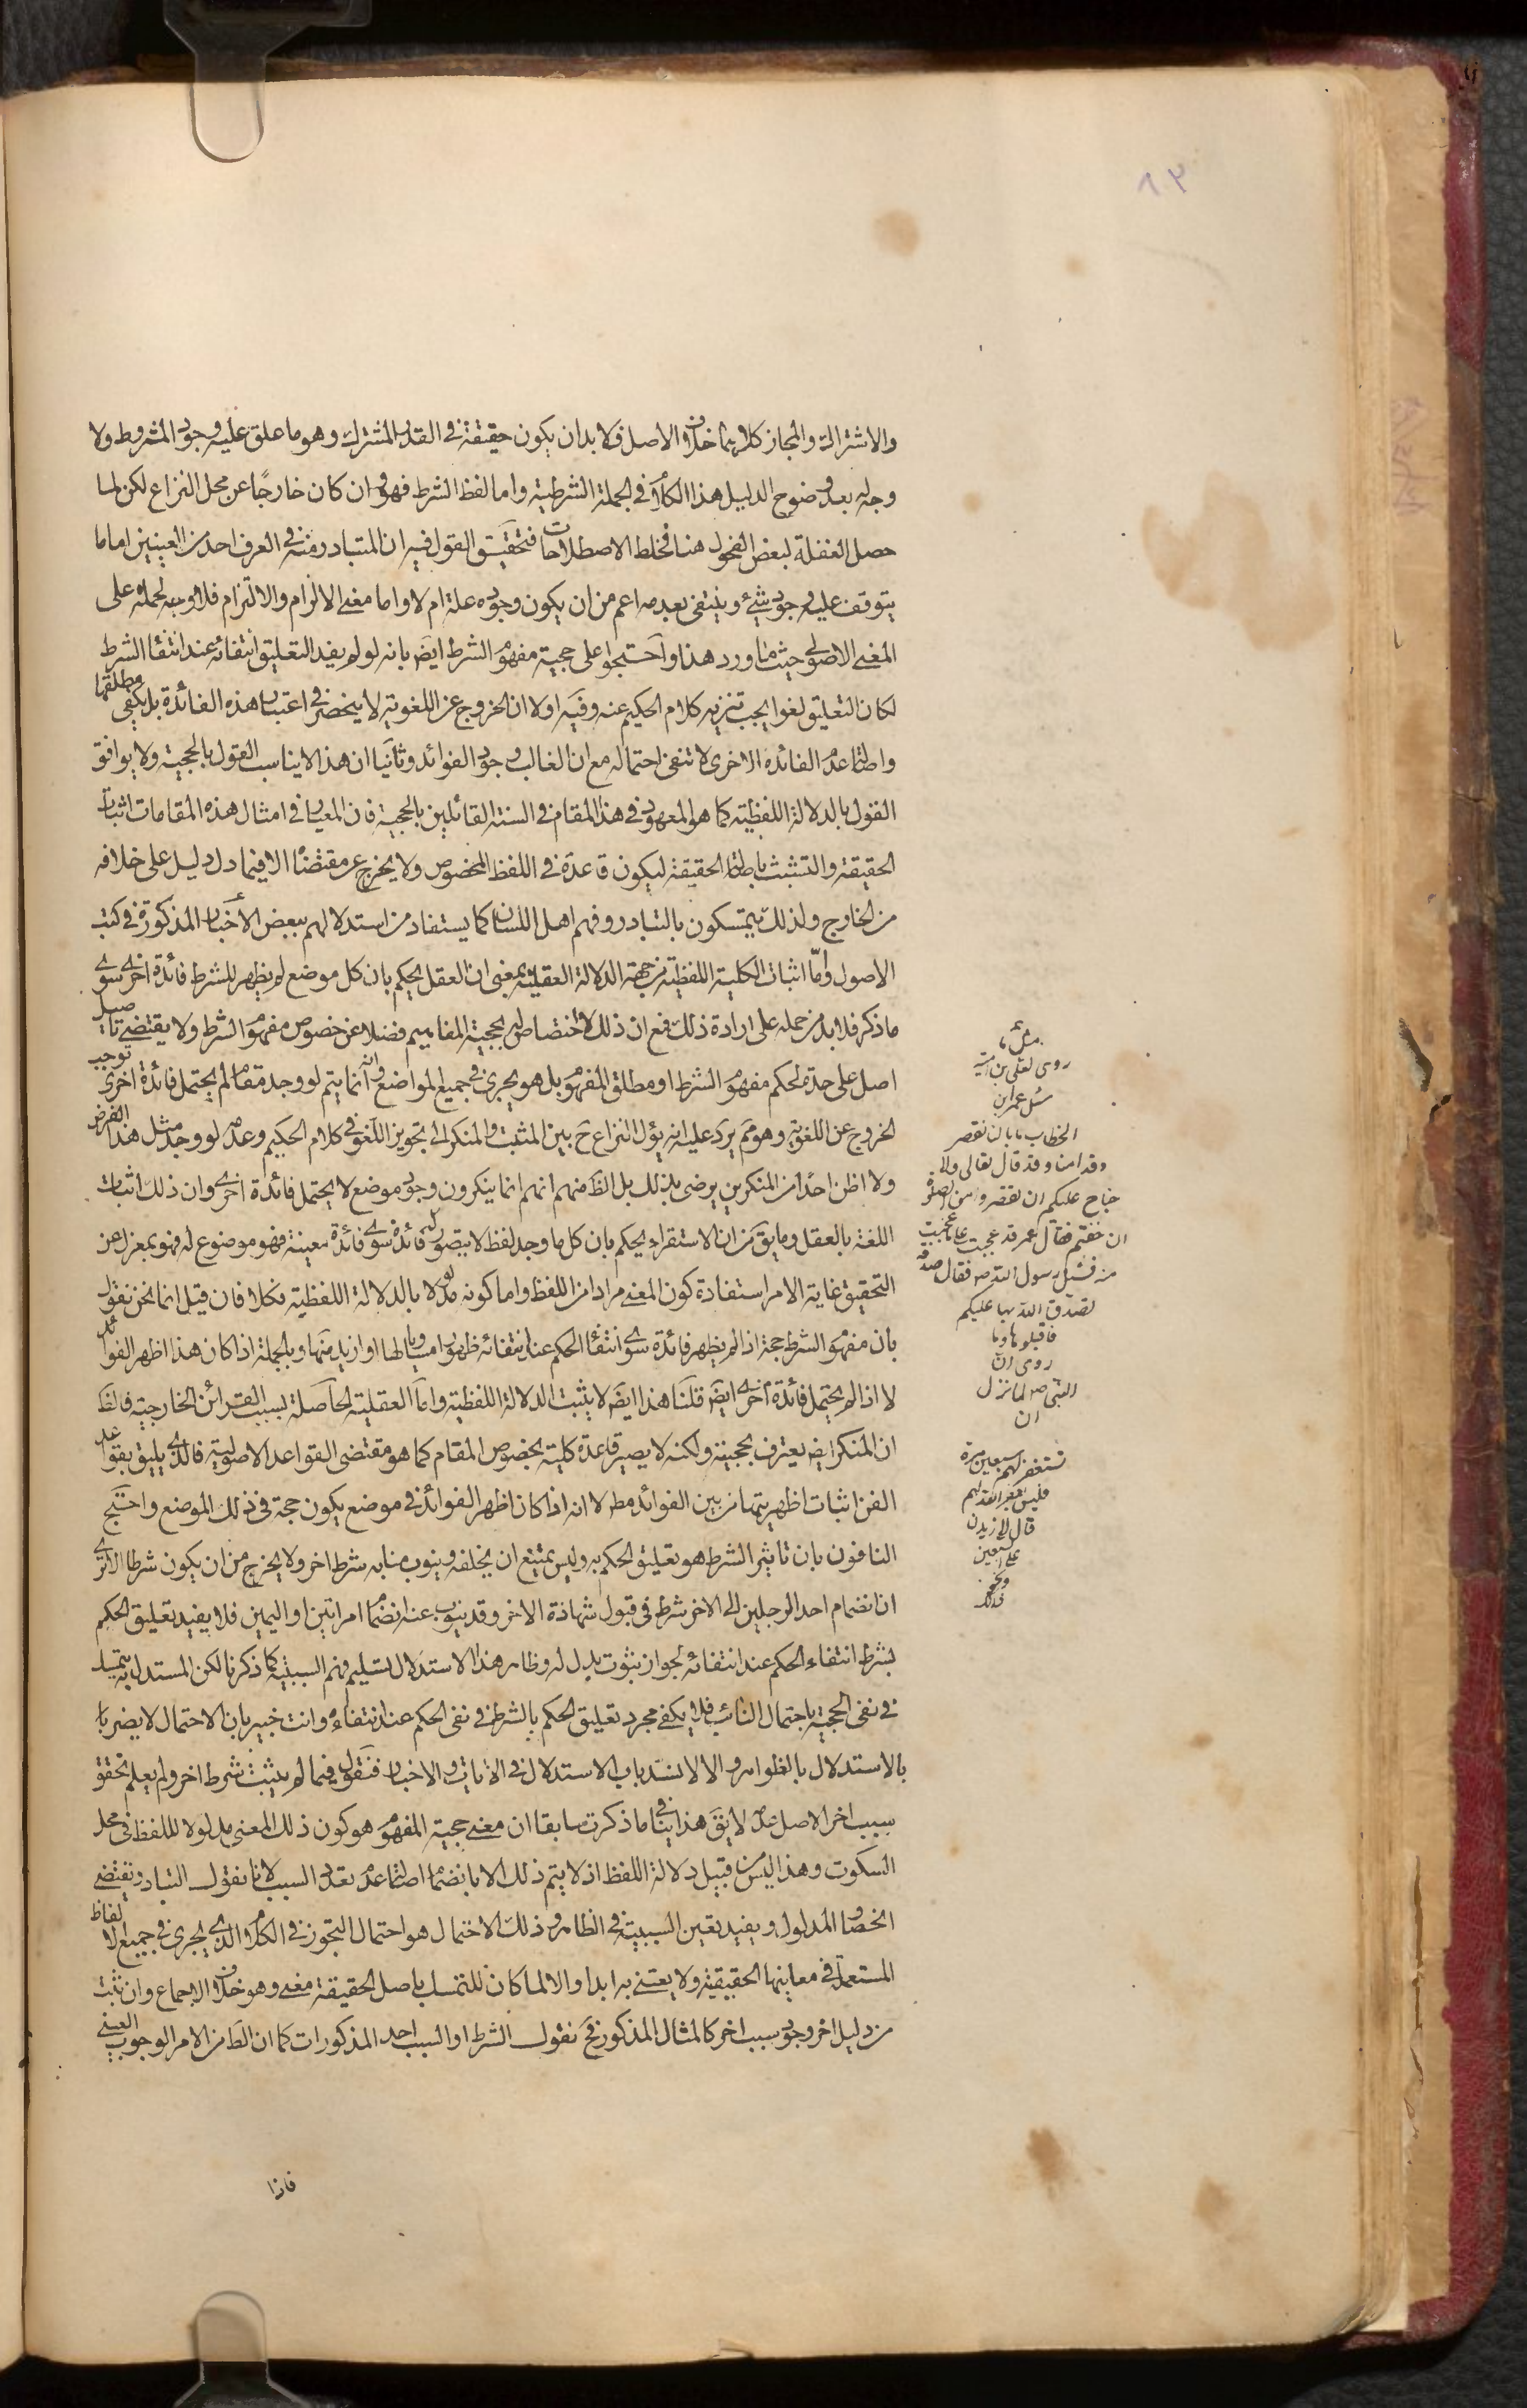 والاشتراك والمجاز كلاهما خلاف الاصل فلا بد ان يكون حقيقة في القدر المشترك وهو ما علق عليه وجود المشروط ولا
وجه له بعد وضوح الدليل هذا الكلام في الجملة الشرطية واما لفظ الشرط فهو وان كان خارجًا عن محل النزاع لكن لما
حصل الغفلة لبعض الفحول هنا فخلط الاصطلاحات فتحقيق القول فيه ان المتبادر منه في العرف احد من المعنيين اما ما
يتوقف عليه وجود شيء وينتفى بعدمه اعم من ان يكون وجوده علة ام لا واما معنى الالزام والالتزام فلا وجه لحمله على
المعنى الاصولى حيث ما ورد هذا واحتجوا على حجية مفهوم الشرط ايضَ بانه لو لم يفد التعليق انتفائه عند انتفاء الشرط
لكان التعليق لغوا يجب تنزيه كلام الحكيم عنه وفيه اولا ان الخروج عن اللغوية لا ينحصر في اعتبار هذه الفائدة بل يكفى مطلقها
واصالة عدم الفائدة الاخرى لا تنفى احتماله مع ان الغالب وجود الفوائد وثانيا ان هذا لا يناسب القول بالحجية ولا يوافق
القول بالدلالة اللفظية كما هو المعهود في هذا المقام في السنة القائلين بالحجية فان المعيار في امثال هذه المقامات اثبات
الحقيقة والتشبث باصالة الحقيقة ليكون قاعدة في اللفظ المخصوص ولا يخرج عن مقتضاها الا فيما دل دليل على خلافه
من الخارج ولذلك يتمسكون بالتبادر وفهم اهل اللسان كما يستفاد من استدلالهم ببعض الأخبار المذكورة في كتب
الاصول وامّا اثبات الكلية اللفظية من جهة الدلالة العقلية بمعنى ان العقل يحكم بان كل موضع لم يظهر للشرط فائدة اخرى سوى
ما ذكر فلا بد من حمله على ارادة ذلك فمع ان ذلك لا اختصاص له بحجية المفاهيم فضلا عن خصوص مفهوم الشرط ولا يقتضى تاصيل
اصل على حدة لحكم مفهوم الشرط او مطلق المفهوم بل هو يجرى في جميع المواضع وانه انما يتم لو وجد مقاما لم يحتمل فائدة اخرى توجب
الخروج عن اللغوية وهو مم يرد عليه انه يؤل النزاع ح بين المثبت والمنكر الى تجويز اللغو في كلام الحكيم وعدمه لو وجد مثل هذا الفرض
ولا اظن احدا من المنكرين يرضى بذلك بل الظَ منهم انهم انما ينكرون وجود موضع لا يحتمل فائدة اخرى وان ذلك اثبات
اللغة بالعقل وما يقَ من ان الاستقراء يحكم بان كل ما وجد لفظ لا يتصور له فائدة سوى فائدة معينة فهو موضوع له فهو بمعزل عن
التحقيق غاية الامر استفادة كون المعنى مرادا من اللفظ واما كونه مدلولا بالدلالة اللفظية فكلا فان قيل انما نحن نقول
بان مفهوم الشرط حجة اذا لم يظهر فائدة سوى انتفاء الحكم عند انتفائه ظهورا مساويا لها او ازيد منها وبالجملة اذا كان هذا اظهر الفوائد
لا اذا لم يحتمل فائدة اخرى ايضَ قلنا هذا ايضَ لا يثبت الدلالة اللفظية واما العقلية الحاصلة بسبب القرائن الخارجية فالظَ
ان المنكر ايضَ يعترف بحجيته ولكنه لا يصير قاعدة كلية بخصوص المقام كما هو مقتضى القواعد الاصولية فالذى يليق بقواعد
الفن اثبات اظهريتها من بين الفوائد مطَ لا انه اذا كان اظهر الفوائد في موضع يكون حجة في ذلك الموضع واحتج
النافون بان تاثير الشرط هو تعليق الحكم به وليس يمتنع ان يخلفه وينوب منابه شرط اخر ولا يخرج من ان يكون شرطا الا ترى
ان انضمام احد الرجلين الى الاخر شرط في قبول شهادة الاخر وقد ينوب عنه انضمام امراتين او اليمين فلا يفيد تعليق الحكم
بشرط انتفاء الحكم عند انتفائه لجواز ثبوت بدل له وظاهر هذا الاستدلال تسليم فهم السببية كما ذكرنا لكن المستدل به يتمسك
في نفى الحجية باحتمال النائب فلا يكفى مجرد تعليق الحكم بالشرط في نفى الحكم عند انتفاءه وانت خبير بان الاحتمال لا يضر
بالاستدلال بالظواهر والا لانسد باب الاستدلال في الآيات والاخبار فنقول فيما لم يثبت شرط اخر ولم يعلم تحقق
سبب اخر الاصل عدمه لا يقَ هذا ينافى ما ذكرت سابقا ان معنى حجية المفهوم هو كون ذلك المعنى مدلولا للفظ في محل
السكوت وهذا ليس من قبيل دلالة اللفظ اذ لا يتم ذلك الا بانضمام اصالة عدم تعدد السبب لانا نقول التبادر يقتضى
انحصار المدلول ويفيد تعين السببية في الظاهر وذلك الاحتمال هو احتمال التجوز في الكلام الذى يجرى في جميع الالفاظ
المستعملة في معانيها الحقيقية ولا يعتنى به ابدا والا لما كان للتمسك باصل الحقيقة معنى وهو خلاف الاجماع وان ثبت
من دليل اخر وجود سبب اخر كالمثال المذكور فحَ نقول الشرط او السبب احد المذكورات كما ان الظَ من الامر الوجوب العينى
فاذا
مثل ما
روى يعلى بن امية
سئل عمر ابن
الخطاب ما بالنا نقصر
وقد امنا وقد قال تعالى ولا
جناح عليكم ان تقصروا من الصلوة
ان خفتم فقال عمر قد عجبت مما عجبت
منه فسئل رسول الله ص فقال صدقة
تصدق الله بها عليكم
فاقبلوها وما
روى ان
النبى ص لما نزل
ان
تستغفر لهم سبعين مرة
فلن يغفر الله لهم
قال لازيدن
على السبعين
ونحو
ذلك